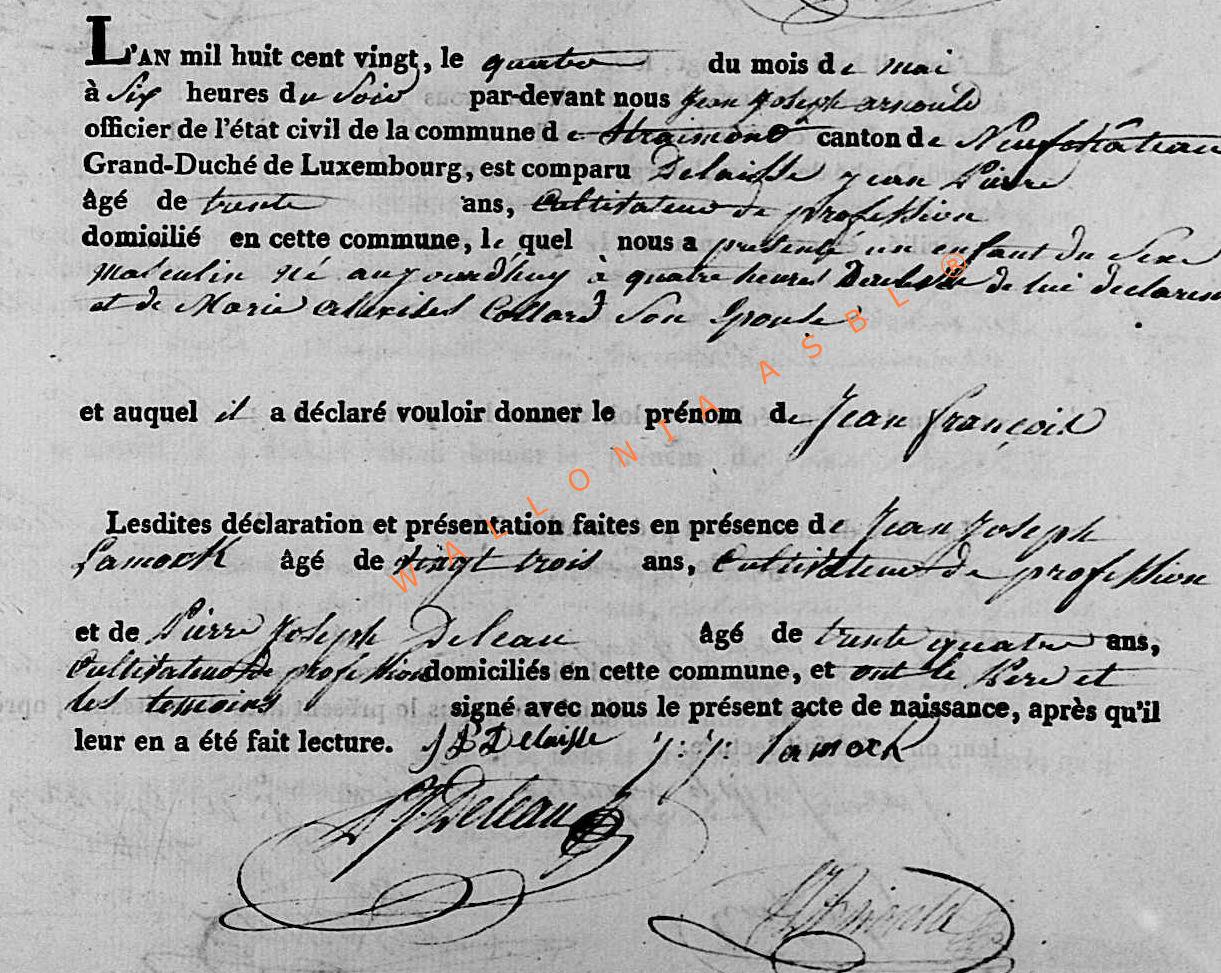 L'AN mil huit cent vingt, le quatre du mois de mai
à Six heures du Soir par-devant nous Jean Joseph arnould
officier de l'état civil de la commune de Straimont canton de Neufchâteau
Grand-Duché de Luxembourg, est comparu Delaisse Jean Pierre
âgé de trente ans, Cultivateur de profession
domicilié en cette commune, le quel nous a présenté un enfant du Sexe
Masculin né aujourdhuy à quatre heures Du de lui declarent
et de Marie Collard Son Epouse
et auquel il a déclaré vouloir donner le prénom de Jean françois
Lesdites déclaration et présentation faites en présence de Jean Joseph
Lamock âgé de vingt trois ans, Cultivateur de profession
et de Pierre Joseph Deleau âgé de trente quatre ans,
Cultivateur de profession domiciliés en cette commune, et ont le Pere et
les temoins signé avec nous le présent acte de naissance, après qu'il
leur en a été fait lecture. J P Delaisse j: j: lamock
P J Deleau
WALLONIA ASBL ®